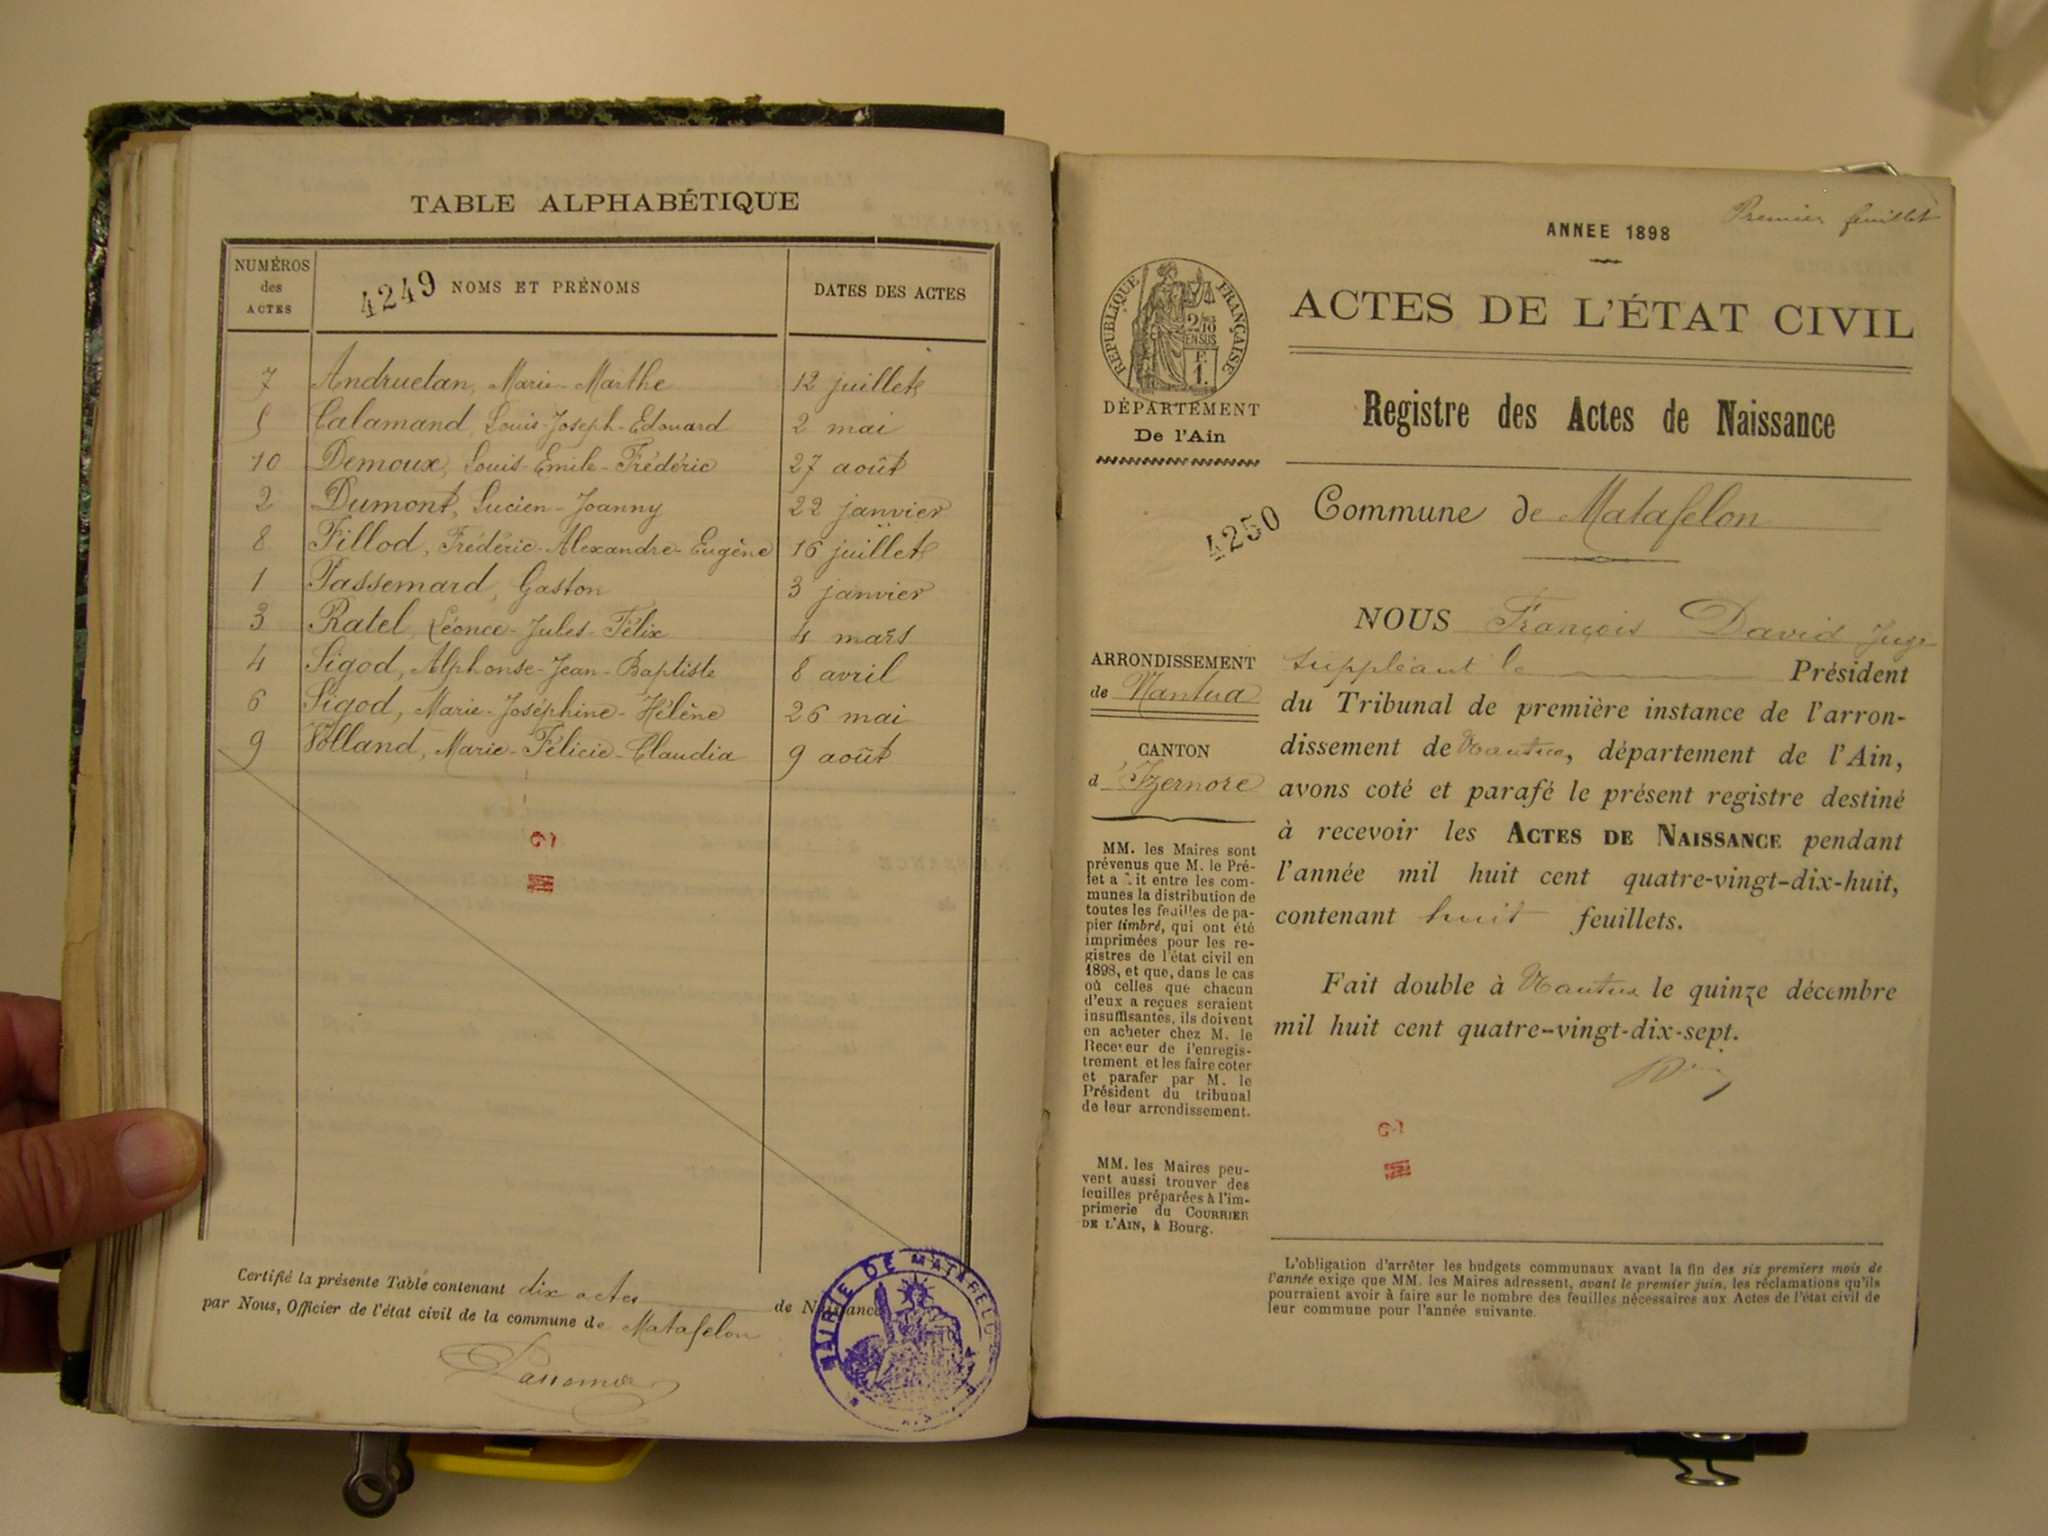 TABLE ALPHABÉTIQUE
NUMÉROS des ACTES
4249 NOMS ET PRÉNOMS
DATES DES ACTES
7 Andruetan, Marie-Marthe 12 juillet
5 Calamand, Louis-Joseph-Edouard 2 mai
10 Demoux, Louis-Emile-Frédéric 27 août
2 Dumont, Lucien-Joanny 22 janvier
8 Fillod, Frédéric-Alexandre-Eugène 16 juillet
1 Passemard, Gaston 3 janvier
3 Ratel, Léonce-Jules-Félix 4 mars
4 Sigod, Alphonse-Jean-Baptiste 8 avril
6 Sigod, Marie-Joséphine-Hélène 26 mai
9 Volland, Marie-Félicie-Claudia 9 août
Certifié la présente Table contenant dix actes de Naissance
par Nous, Officier de l'état civil de la commune de Matafelon
MAIRIE DE MATAFELON
Premier feuillet
ANNEE 1898
RÉPUBLIQUE FRANÇAISE
2/10 EN SUS
F. 1.
DÉPARTEMENT
De l'Ain
ACTES DE L'ÉTAT CIVIL
Registre des Actes de Naissance
4250
Commune de Matafelon
ARRONDISSEMENT
de Nantua
CANTON
d'Izernore
MM. les Maires sont
prévenus que M. le Pré-
fet a it entre les com-
munes la distribution de
toutes les feuilles de pa-
pier timbré, qui ont été
imprimées pour les re-
gistres de l'état civil en
1898, et que, dans le cas
où celles que chacun
d'eux a reçues seraient
insuffisantes, ils doivent
en acheter chez M. le
Receveur de l'enregis-
trement et les faire coter
et parafer par M. le
Président du tribunal
de leur arrondissement.
MM. les Maires peu-
vent aussi trouver des
feuilles préparées à l'im-
primerie du COURRIER
DE L'AIN, à Bourg.
NOUS François David Juge
suppléant le Président
du Tribunal de première instance de l'arron-
dissement de Nantua, département de l'Ain,
avons coté et parafé le présent registre destiné
à recevoir les ACTES DE NAISSANCE pendant
l'année mil huit cent quatre-vingt-dix-huit,
contenant huit feuillets.
Fait double à Nantua le quinze décembre
mil huit cent quatre-vingt-dix-sept.
L'obligation d'arrêter les budgets communaux avant la fin des six premiers mois de
l'année exige que MM. les Maires adressent, avant le premier juin, les réclamations qu'ils
pourraient avoir à faire sur le nombre des feuilles nécessaires aux Actes de l'état civil de
leur commune pour l'année suivante.